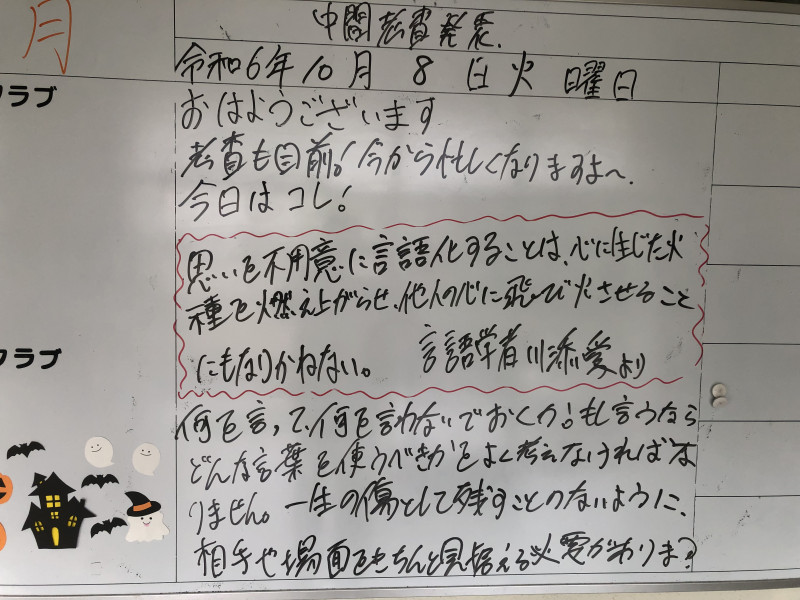 月
中間考査発表.
令和6年10月8日火曜日
クラブ
おはようございます
考査も目前!今から忙しくなりますよ〜.
今日はコレ!
思いを不用意に言語化することは、心に生じた火
種を燃え上がらせ、他人の心に飛び火させること
にもなりかねない。 言語学者川添愛より
クラブ
何を言って、何を言わないでおくか!もし言うなら
どんな言葉を使うべきかをよく考えなければな
りません。一生の傷として残すことのないように、
相手や場面をきちんと見据える必要がありま?